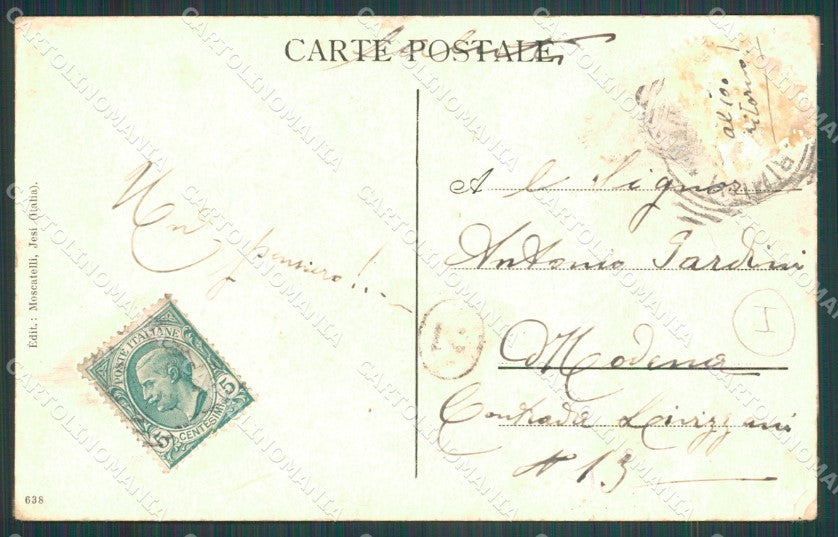 CARTE POSTALE
al 100
ritorna!
Un pensiero!!...
A l Signor
Antonio Pardini
Modena
Contrada Livizzani
N 13
I
POSTE ITALIANE
5 CENTESIMI 5
Edit.: Moscatelli, Jesi (Italia).
638
CARTOLINOMANIA